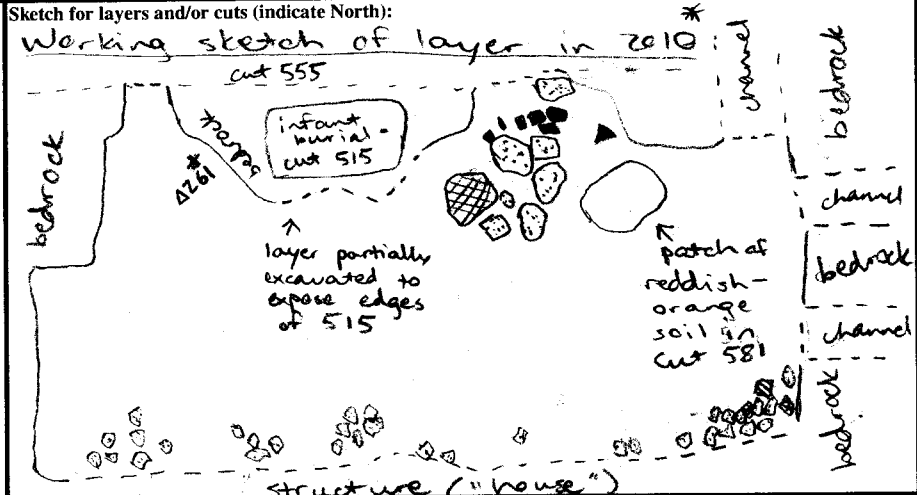 Sketch for layers and/or cuts (indicate North):
*
Working sketch of layer in 2010:
cut 555
channel
bedrock
bedrock
bedrock
infant
burial -
cut 515
Δ261*
channel
layer partially
excavated to
expose edges
of 515
patch of
reddish-
orange
soil in
cut 581
bedrock
channel
bedrock
structure ("house")